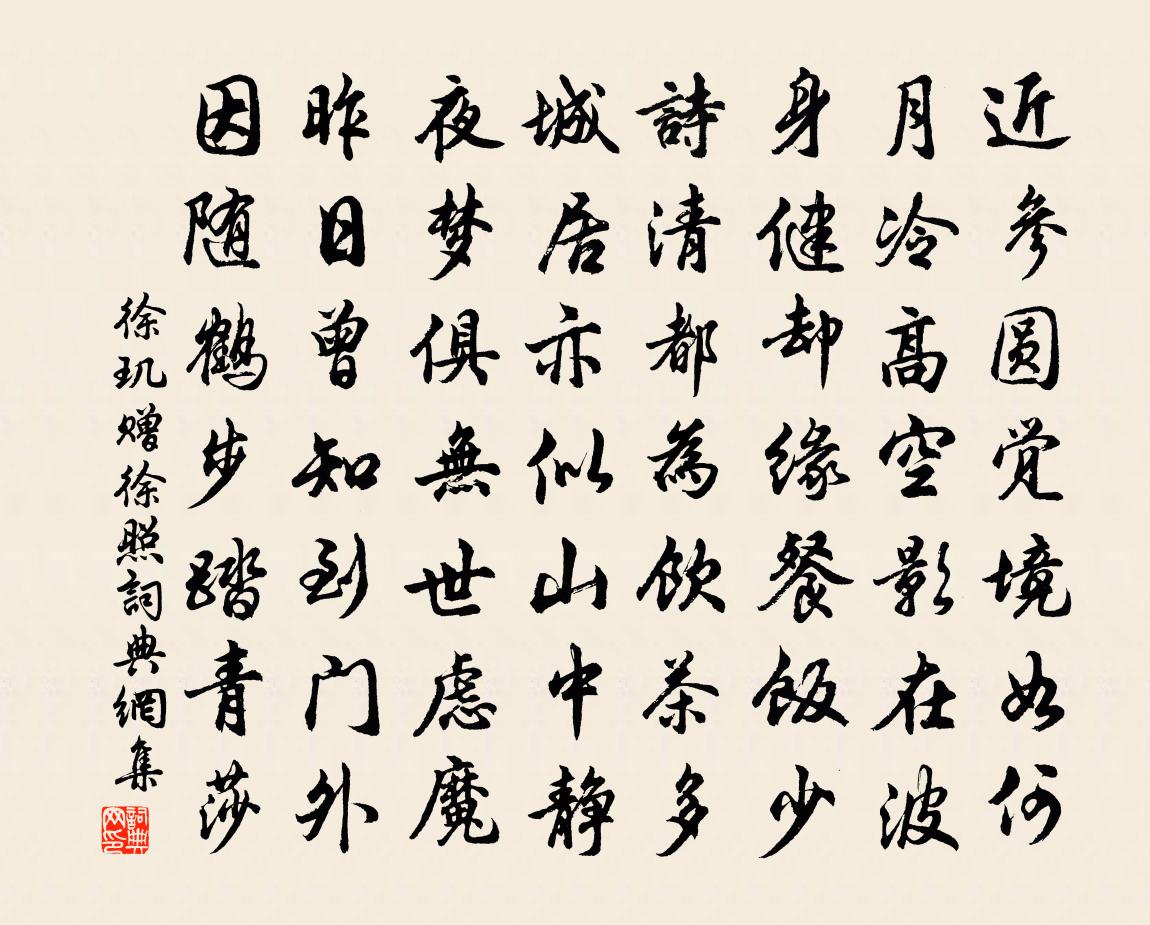 近參圆觉境如何
月冷高空影在波
身健却缘餐飯少
詩清都為飲茶多
城居亦似山中静
夜梦俱無世虑魔
昨日曾知到门外
因随鹤步踏青莎
徐玑赠徐照詞典網集
詞典网印